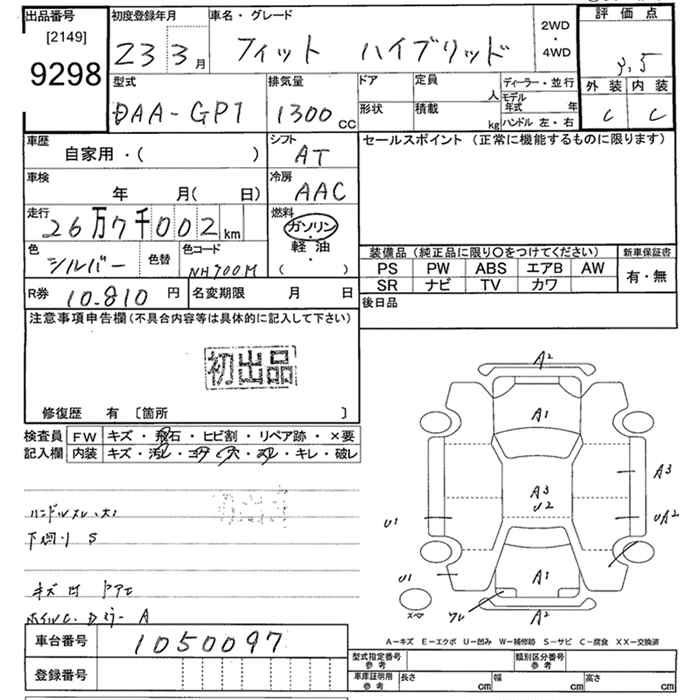 出品番号
[2149]
9298
初度登録年月
23 3月
車名・グレード
フィット ハイブリッド
2WD
・
4WD
評価点
3.5
外装 内装
C C
型式
DAA-GP1
排気量
1300cc
ドア
定員
人
形状
積載
kg
ディーラー・並行
モデル年式 年
ハンドル 左・右
車歴
自家用・( )
シフト
AT
セールスポイント (正常に機能するものに限ります)
車検
年 月( 日)
冷房
AAC
走行
26万7千002km
燃料
ガソリン
・
軽油
( )
色
シルバー
色替
色コード
NH700M
装備品 (純正品に限り○をつけてください)
PS PW ABS エアB AW
SR ナビ TV カワ
新車保証書
有・無
R券 10.810 円
名変期限 月 日
後日品
注意事項申告欄(不具合内容等は具体的に記入して下さい)
初出品
修復歴 有 〔箇所 〕
検査員
記入欄
FW キズ・飛石・ヒビ割・リペア跡・×要
内装 キズ・汚レ・コゲ・穴・スレ・キレ・破レ
下廻り S
A2
A1
A3
A3
U2
U1
UA2
U1
A1
A2
A-キズ E-エクボ U-凹み W-補修跡 S-サビ C-腐食 XX-交換済
車台番号 1050097
登録番号
型式指定番号
参考
類別区分番号
参考
車庫証明用
参考
長さ cm
幅 cm
高さ cm